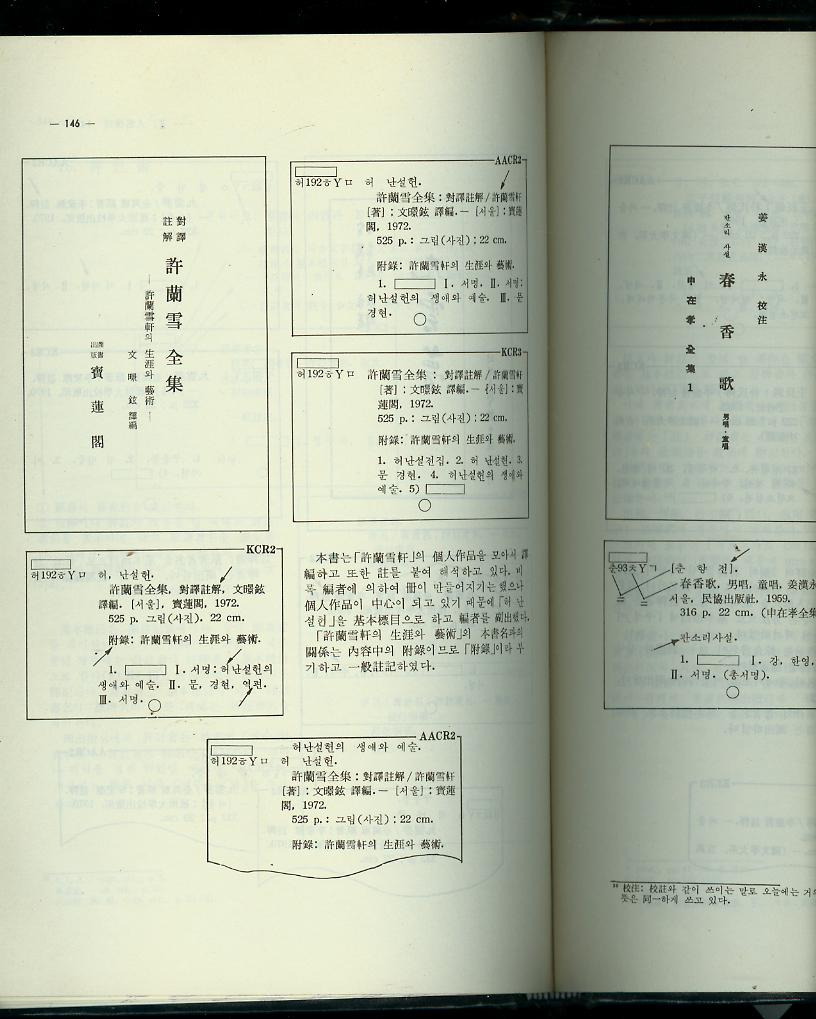 — 146 —
對譯
註解
許蘭雪全集
— 許蘭雪軒의 生涯와 藝術 —
文 暻 鉉 譯編
圖書
出版
寶蓮閣
AACR2
허192ㅎYㅁ 허 난설헌.
許蘭雪全集 : 對譯註解 / 許蘭雪軒
[著] ; 文暻鉉 譯編. — [서울] : 寶蓮
閣, 1972.
525 p. : 그림(사진) ; 22 cm.
附錄: 許蘭雪軒의 生涯와 藝術.
1. Ⅰ. 서명. Ⅱ. 서명:
허난설헌의 생애와 예술. Ⅲ. 문
경현.
KCR3
허192ㅎYㅁ 許蘭雪全集 : 對譯註解 / 許蘭雪軒
[著] ; 文暻鉉 譯編. — [서울] : 寶
蓮閣, 1972.
525 p. : 그림(사진) ; 22 cm.
附錄: 許蘭雪軒의 生涯와 藝術.
1. 허난설전집. 2. 허 난설헌. 3.
문 경현. 4. 허난설헌의 생애와
예술. 5)
KCR2
허192ㅎYㅁ 허, 난설헌.
許蘭雪全集, 對譯註解, 文暻鉉
譯編. [서울], 寶蓮閣, 1972.
525 p. 그림(사진). 22 cm.
附錄: 許蘭雪軒의 生涯와 藝術.
1. Ⅰ. 서명: 허난설헌의
생애와 예술. Ⅱ. 문, 경현, 역편.
Ⅲ. 서명.
本書는「許蘭雪軒」의 個人作品을 모아서 譯
編하고 또한 註를 붙여 해석하고 있다. 비
록 編者에 의하여 冊이 만들어지기는 했으나
個人作品이 中心이 되고 있기 때문에「허 난
설헌」을 基本標目으로 하고 編者를 副出했다.
「許蘭雪軒의 生涯와 藝術」의 本書名과의
關係는 內容中의 附錄이므로「附錄」이라 부
기하고 一般註記하였다.
AACR2
허난설헌의 생애와 예술.
허192ㅎYㅁ 허 난설헌.
許蘭雪全集 : 對譯註解 / 許蘭雪軒
[著] ; 文暻鉉 譯編. — [서울] : 寶蓮
閣, 1972.
525 p. : 그림(사진) ; 22 cm.
附錄: 許蘭雪軒의 生涯와 藝術.
姜漢永 校注
판소리 사설
春香歌
男唱·童唱
申在孝 全集 1
춘93ㅊYㄱ [춘 향 전].
春香歌, 男唱, 童唱, 姜漢永
서울, 民協出版社, 1959.
316 p. 22 cm. (申在孝全集
판소리사설.
1. Ⅰ. 강, 한영,
Ⅱ. 서명. (총서명).
校注: 校註와 같이 쓰이는 말로 오늘에는 거의
뜻은 同一하게 쓰고 있다.